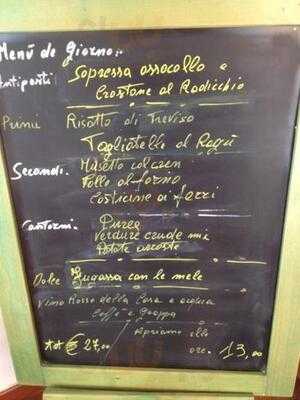 Menú de Giorno:
Antipasti: Sopressa ossocollo e
Crostone al Radicchio
Primi Risotto di Treviso
Tagliatelle al Ragù
Secondi: Musetto col cren
Pollo al forno
Costicine ai ferri
Contorni: Purea
Verdure crude mix
Patate arroste
Dolce Fugassa con le mele
Vino Rosso della Casa e acqua
Caffè e grappa
Apriamo alle
tot € 27,00 ore. 13,00